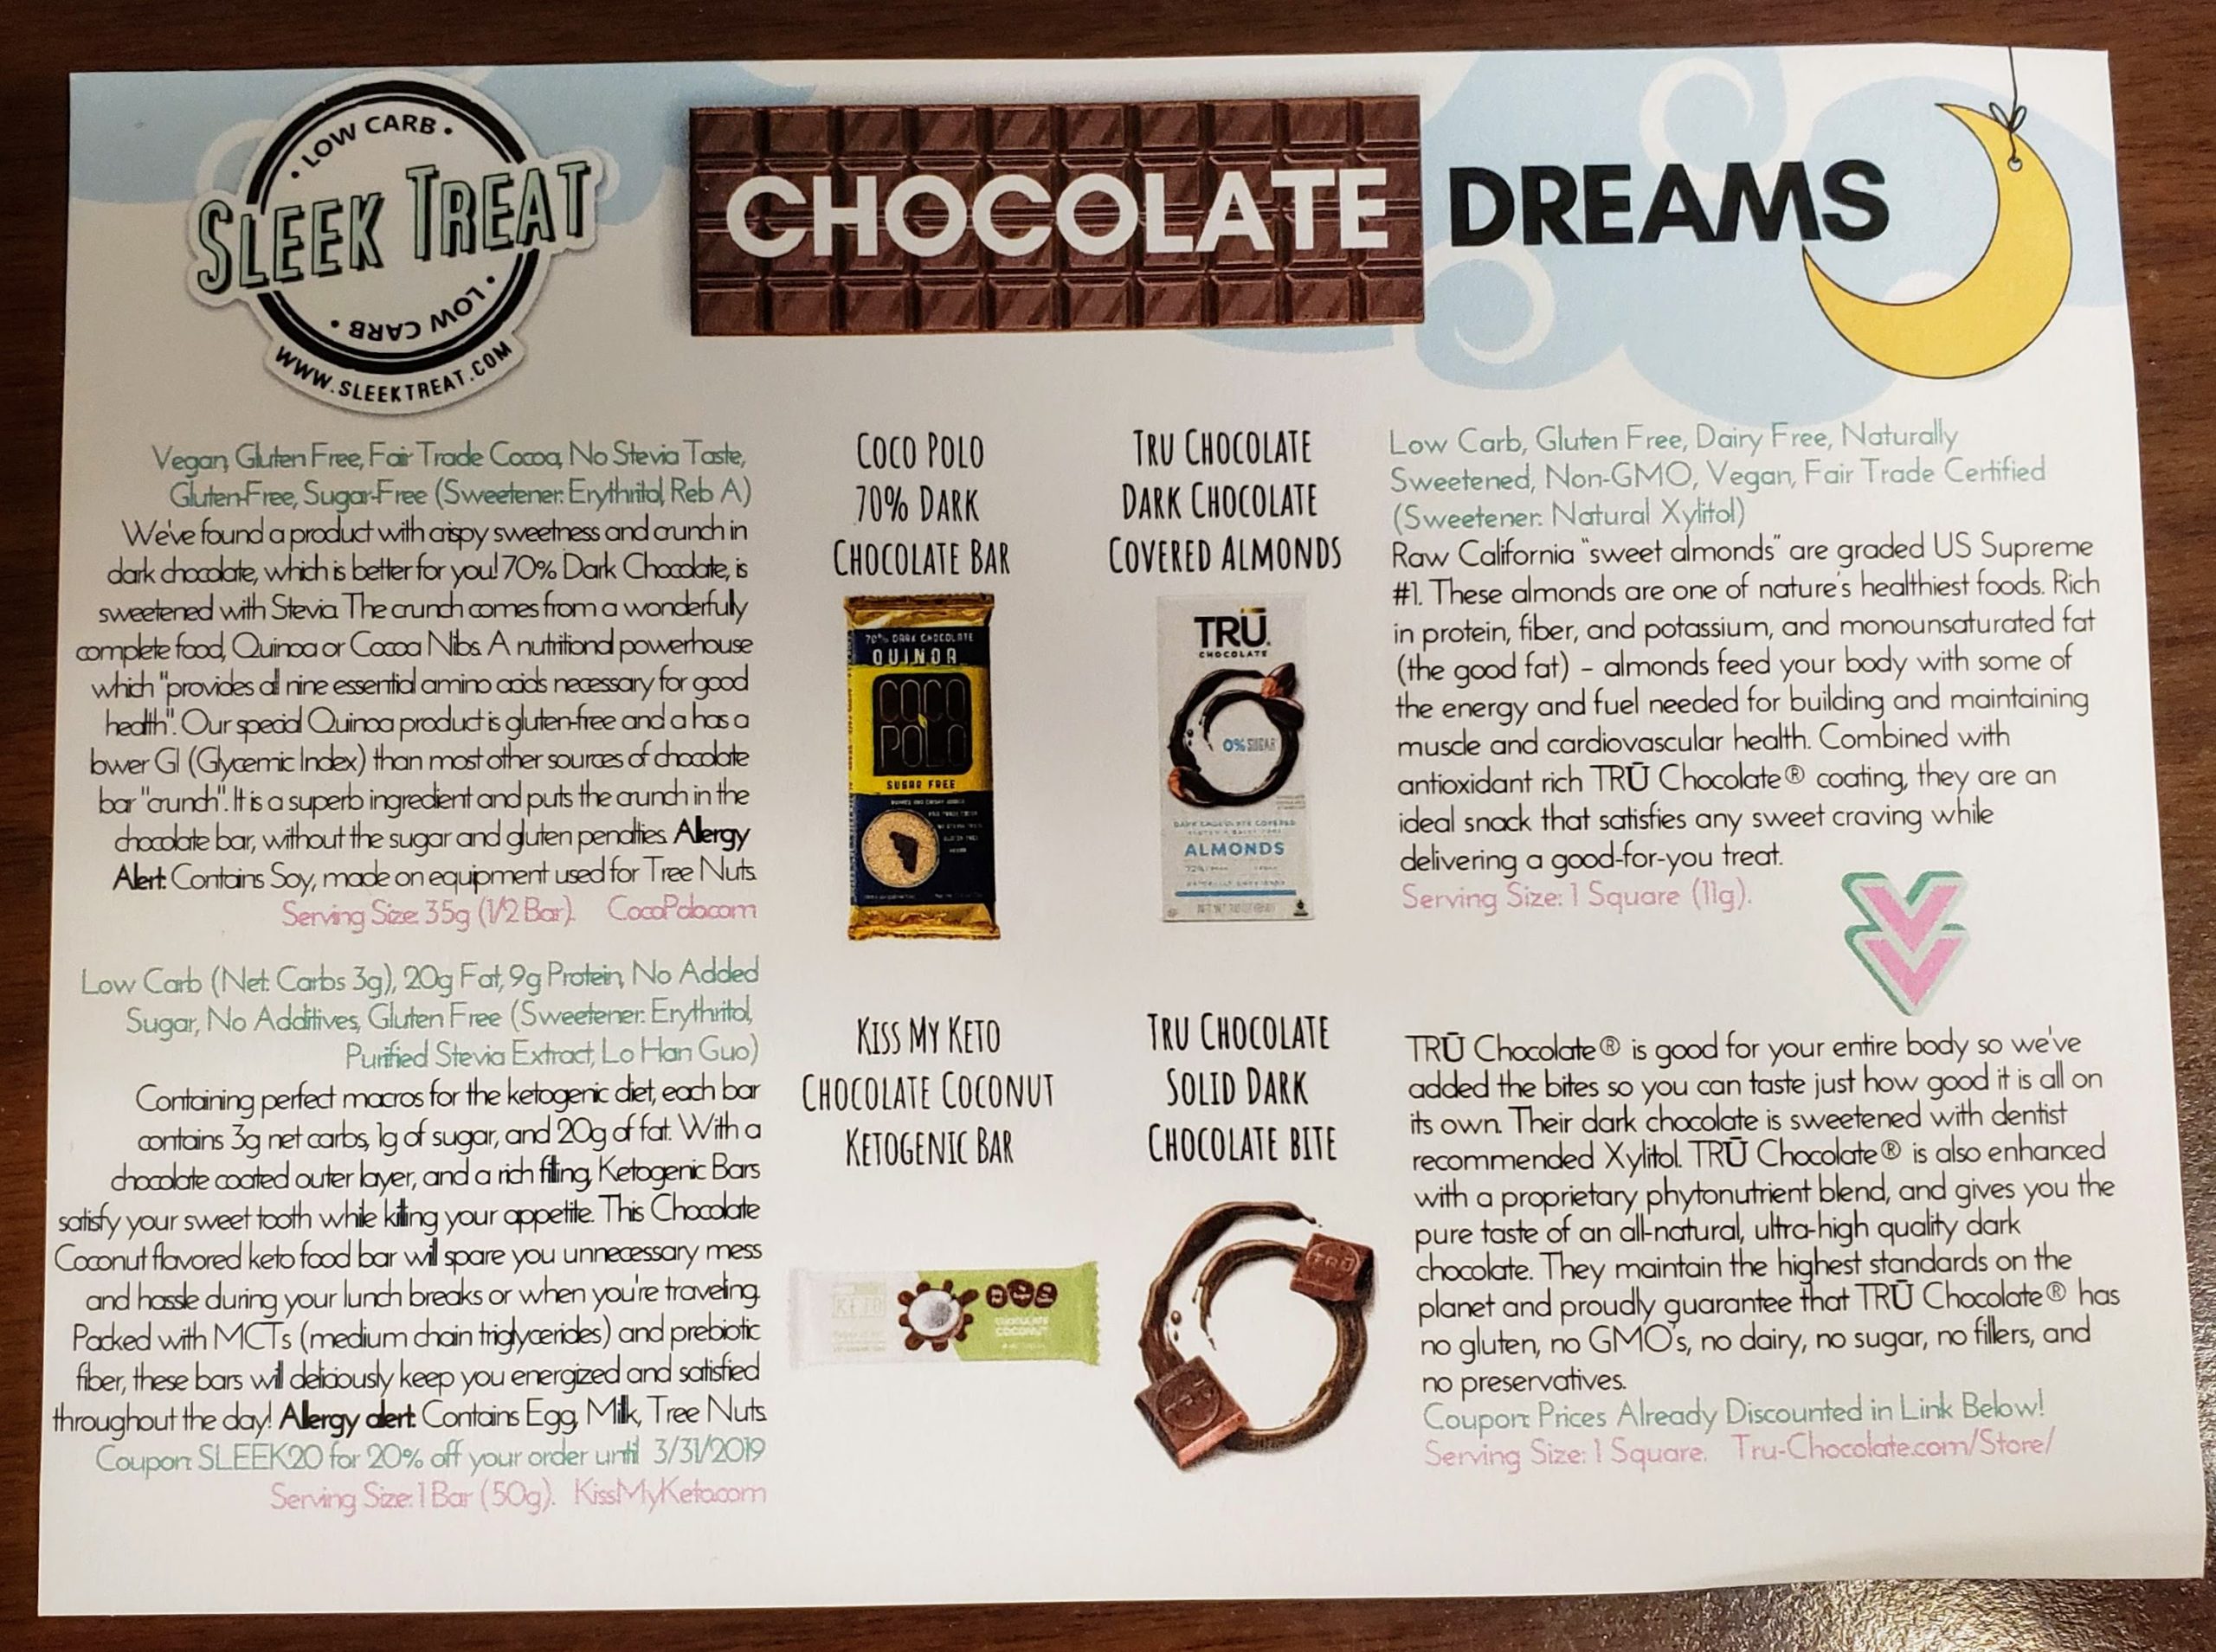 • LOW CARB •
SLEEK TREAT
• LOW CARB •
WWW.SLEEKTREAT.COM
CHOCOLATE DREAMS
Vegan, Gluten Free, Fair Trade Cocoa, No Stevia Taste,
Gluten-Free, Sugar-Free (Sweetener: Erythritol, Reb A)
We've found a product with crispy sweetness and crunch in
dark chocolate, which is better for you! 70% Dark Chocolate, is
sweetened with Stevia. The crunch comes from a wonderfully
complete food, Quinoa or Cocoa Nibs. A nutritional powerhouse
which "provides all nine essential amino acids necessary for good
health". Our special Quinoa product is gluten-free and a has a
lower GI (Glycemic Index) than most other sources of chocolate
bar "crunch". It is a superb ingredient and puts the crunch in the
chocolate bar, without the sugar and gluten penalties. Allergy
Alert: Contains Soy, made on equipment used for Tree Nuts.
Serving Size: 35g (1/2 Bar). CocoPolo.com
COCO POLO
70% DARK
CHOCOLATE BAR
70% DARK CHOCOLATE
QUINOA
COCO
POLO
SUGAR FREE
TRU CHOCOLATE
DARK CHOCOLATE
COVERED ALMONDS
TRŪ
CHOCOLATE
0% SUGAR
DARK CHOCOLATE COVERED
ALMONDS
Low Carb, Gluten Free, Dairy Free, Naturally
Sweetened, Non-GMO, Vegan, Fair Trade Certified
(Sweetener: Natural Xylitol)
Raw California "sweet almonds" are graded US Supreme
#1. These almonds are one of nature's healthiest foods. Rich
in protein, fiber, and potassium, and monounsaturated fat
(the good fat) – almonds feed your body with some of
the energy and fuel needed for building and maintaining
muscle and cardiovascular health. Combined with
antioxidant rich TRŪ Chocolate® coating, they are an
ideal snack that satisfies any sweet craving while
delivering a good-for-you treat.
Serving Size: 1 Square (11g).
Low Carb (Net Carbs 3g), 20g Fat, 9g Protein, No Added
Sugar, No Additives, Gluten Free (Sweetener: Erythritol,
Purified Stevia Extract, Lo Han Guo)
Containing perfect macros for the ketogenic diet, each bar
contains 3g net carbs, 1g of sugar, and 20g of fat. With a
chocolate coated outer layer, and a rich filling, Ketogenic Bars
satisfy your sweet tooth while killing your appetite. This Chocolate
Coconut flavored keto food bar will spare you unnecessary mess
and hassle during your lunch breaks or when you're traveling.
Packed with MCTs (medium chain triglycerides) and prebiotic
fiber, these bars will deliciously keep you energized and satisfied
throughout the day! Allergy alert: Contains Egg, Milk, Tree Nuts.
Coupon: SLEEK20 for 20% off your order until 3/31/2019
Serving Size: 1 Bar (50g). KissMyKeto.com
KISS MY KETO
CHOCOLATE COCONUT
KETOGENIC BAR
KETO
CHOCOLATE
COCONUT
TRU CHOCOLATE
SOLID DARK
CHOCOLATE BITE
TRŪ
TRŪ Chocolate® is good for your entire body so we've
added the bites so you can taste just how good it is all on
its own. Their dark chocolate is sweetened with dentist
recommended Xylitol. TRŪ Chocolate® is also enhanced
with a proprietary phytonutrient blend, and gives you the
pure taste of an all-natural, ultra-high quality dark
chocolate. They maintain the highest standards on the
planet and proudly guarantee that TRŪ Chocolate® has
no gluten, no GMO's, no dairy, no sugar, no fillers, and
no preservatives.
Coupon: Prices Already Discounted in Link Below!
Serving Size: 1 Square. Tru-Chocolate.com/Store/